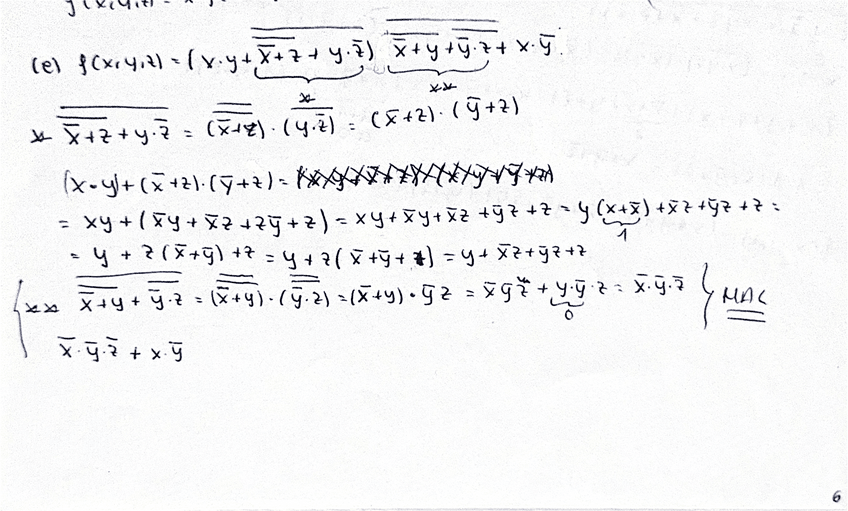 (e) f(x,y,z) = (x·y + \overline{\overline{\overline{x}+z} + y·\overline{z}}) · \overline{\overline{\overline{x}+y} + \overline{\overline{y}·z}} + x·\overline{y}
* **
* \overline{\overline{\overline{x}+z} + y·\overline{z}} = (\overline{\overline{\overline{x}+z}})·(\overline{y·\overline{z}}) = (\overline{x}+z)·(\overline{y}+z)
(x·y)+(\overline{x}+z)·(\overline{y}+z) =
= xy + (\overline{x}y + \overline{x}z + z\overline{y} + z) = xy + \overline{x}y + \overline{x}z + \overline{y}z + z = y(x+\overline{x}) + \overline{x}z + \overline{y}z + z =
1
= y + z(\overline{x}+\overline{y}) + z = y + z(\overline{x}+\overline{y}+1) = y + \overline{x}z + \overline{y}z + z
** \overline{\overline{\overline{x}+y} + \overline{\overline{y}·z}} = (\overline{\overline{\overline{x}+y}})·(\overline{\overline{\overline{y}·z}}) = (\overline{x}+y)·\overline{y}z = \overline{x}\,\overline{y}\,\overline{z} + y·\overline{y}·z = \overline{x}·\overline{y}·\overline{z} } MAL
0
\overline{x}·\overline{y}·\overline{z} + x·\overline{y}
6